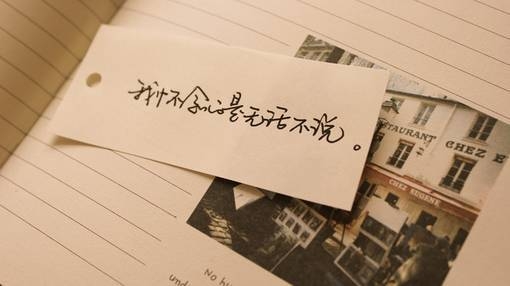 我们不会总是无话不说。
STAURANT CHEZ E
CHEZ EUGENE
No h
und